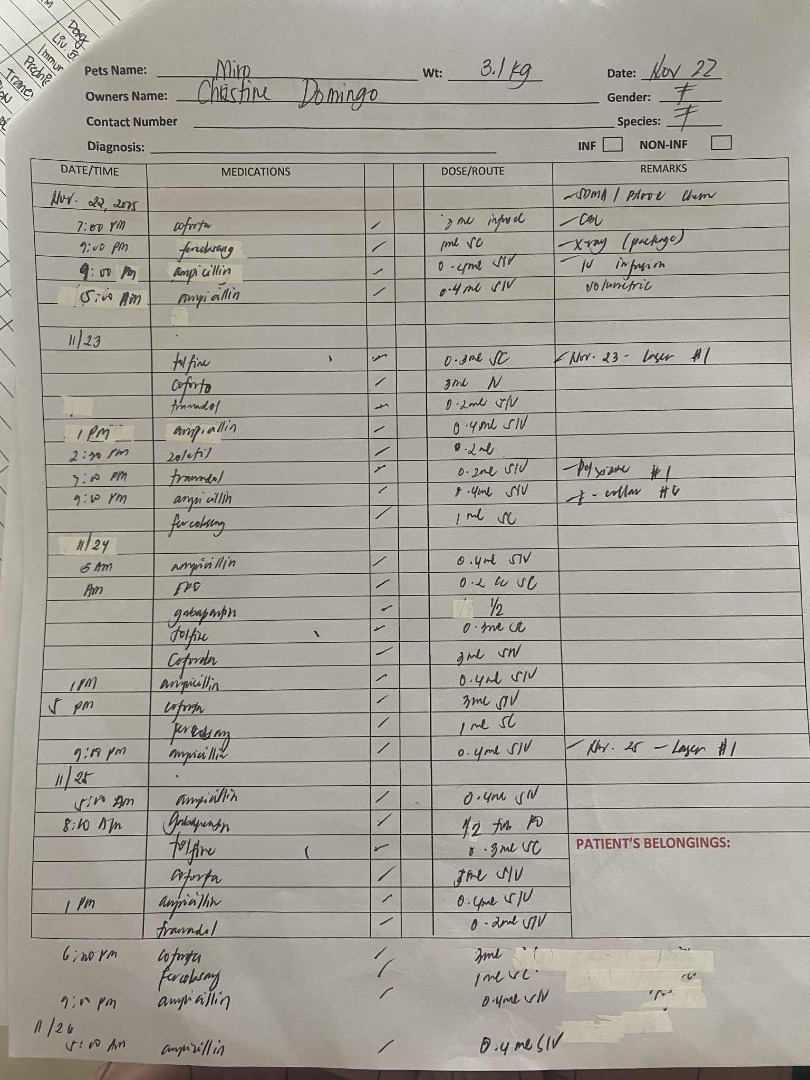 Pets Name: Miro Wt: 3.1 kg Date: Nov 22
Owners Name: Christine Domingo Gender: F
Contact Number Species: F
Diagnosis: INF NON-INF
DATE/TIME MEDICATIONS DOSE/ROUTE REMARKS
Nov. 22, 2025 - SDMA / Blood Chem
7:00 PM coforta 3 ml - CBC
9:00 PM fercobsang 1ml SC - X-ray (package)
9:00 PM ampicillin 0.4ml SIV IV infusion
5:00 AM ampicillin 0.4 ml SIV volumetric
11/23
tolfine 0.3ml SC Nov. 23 - Laser #1
Coforta 3ml
tramadol 0.2ml SIV
1 PM ampicillin 0.4ml SIV
2:30 PM zoletil 0.2ml
7:00 PM tramadol 0.2ml SIV #1
9:00 PM ampicillin 0.4ml SIV E-collar #6
fercobsang 1 ml SC
11/24
5 AM ampicillin 0.4ml SIV
AM EPO 0.2 cc SC
gabapentin 1/2
tolfine 0.3ml SC
Coforta 3ml SIV
1PM ampicillin 0.4ml SIV
5 pm coforta 3ml SIV
fercobsang 1 ml SC
9:00 pm ampicillin 0.4ml SIV Nov. 25 - Laser #1
11/25
5:00 AM ampicillin 0.4ml SIV
8:00 AM Gabapentin 1/2 tab PO
tolfine 0.3ml SC PATIENT'S BELONGINGS:
Coforta 3ml SIV
1 PM ampicillin 0.4ml SIV
tramadol 0.2ml SIV
6:00 PM coforta 3ml
fercobsang 1ml SC.
9:00 pm ampicillin 0.4ml SIV
11/26
5:00 AM ampicillin 0.4 ml SIV